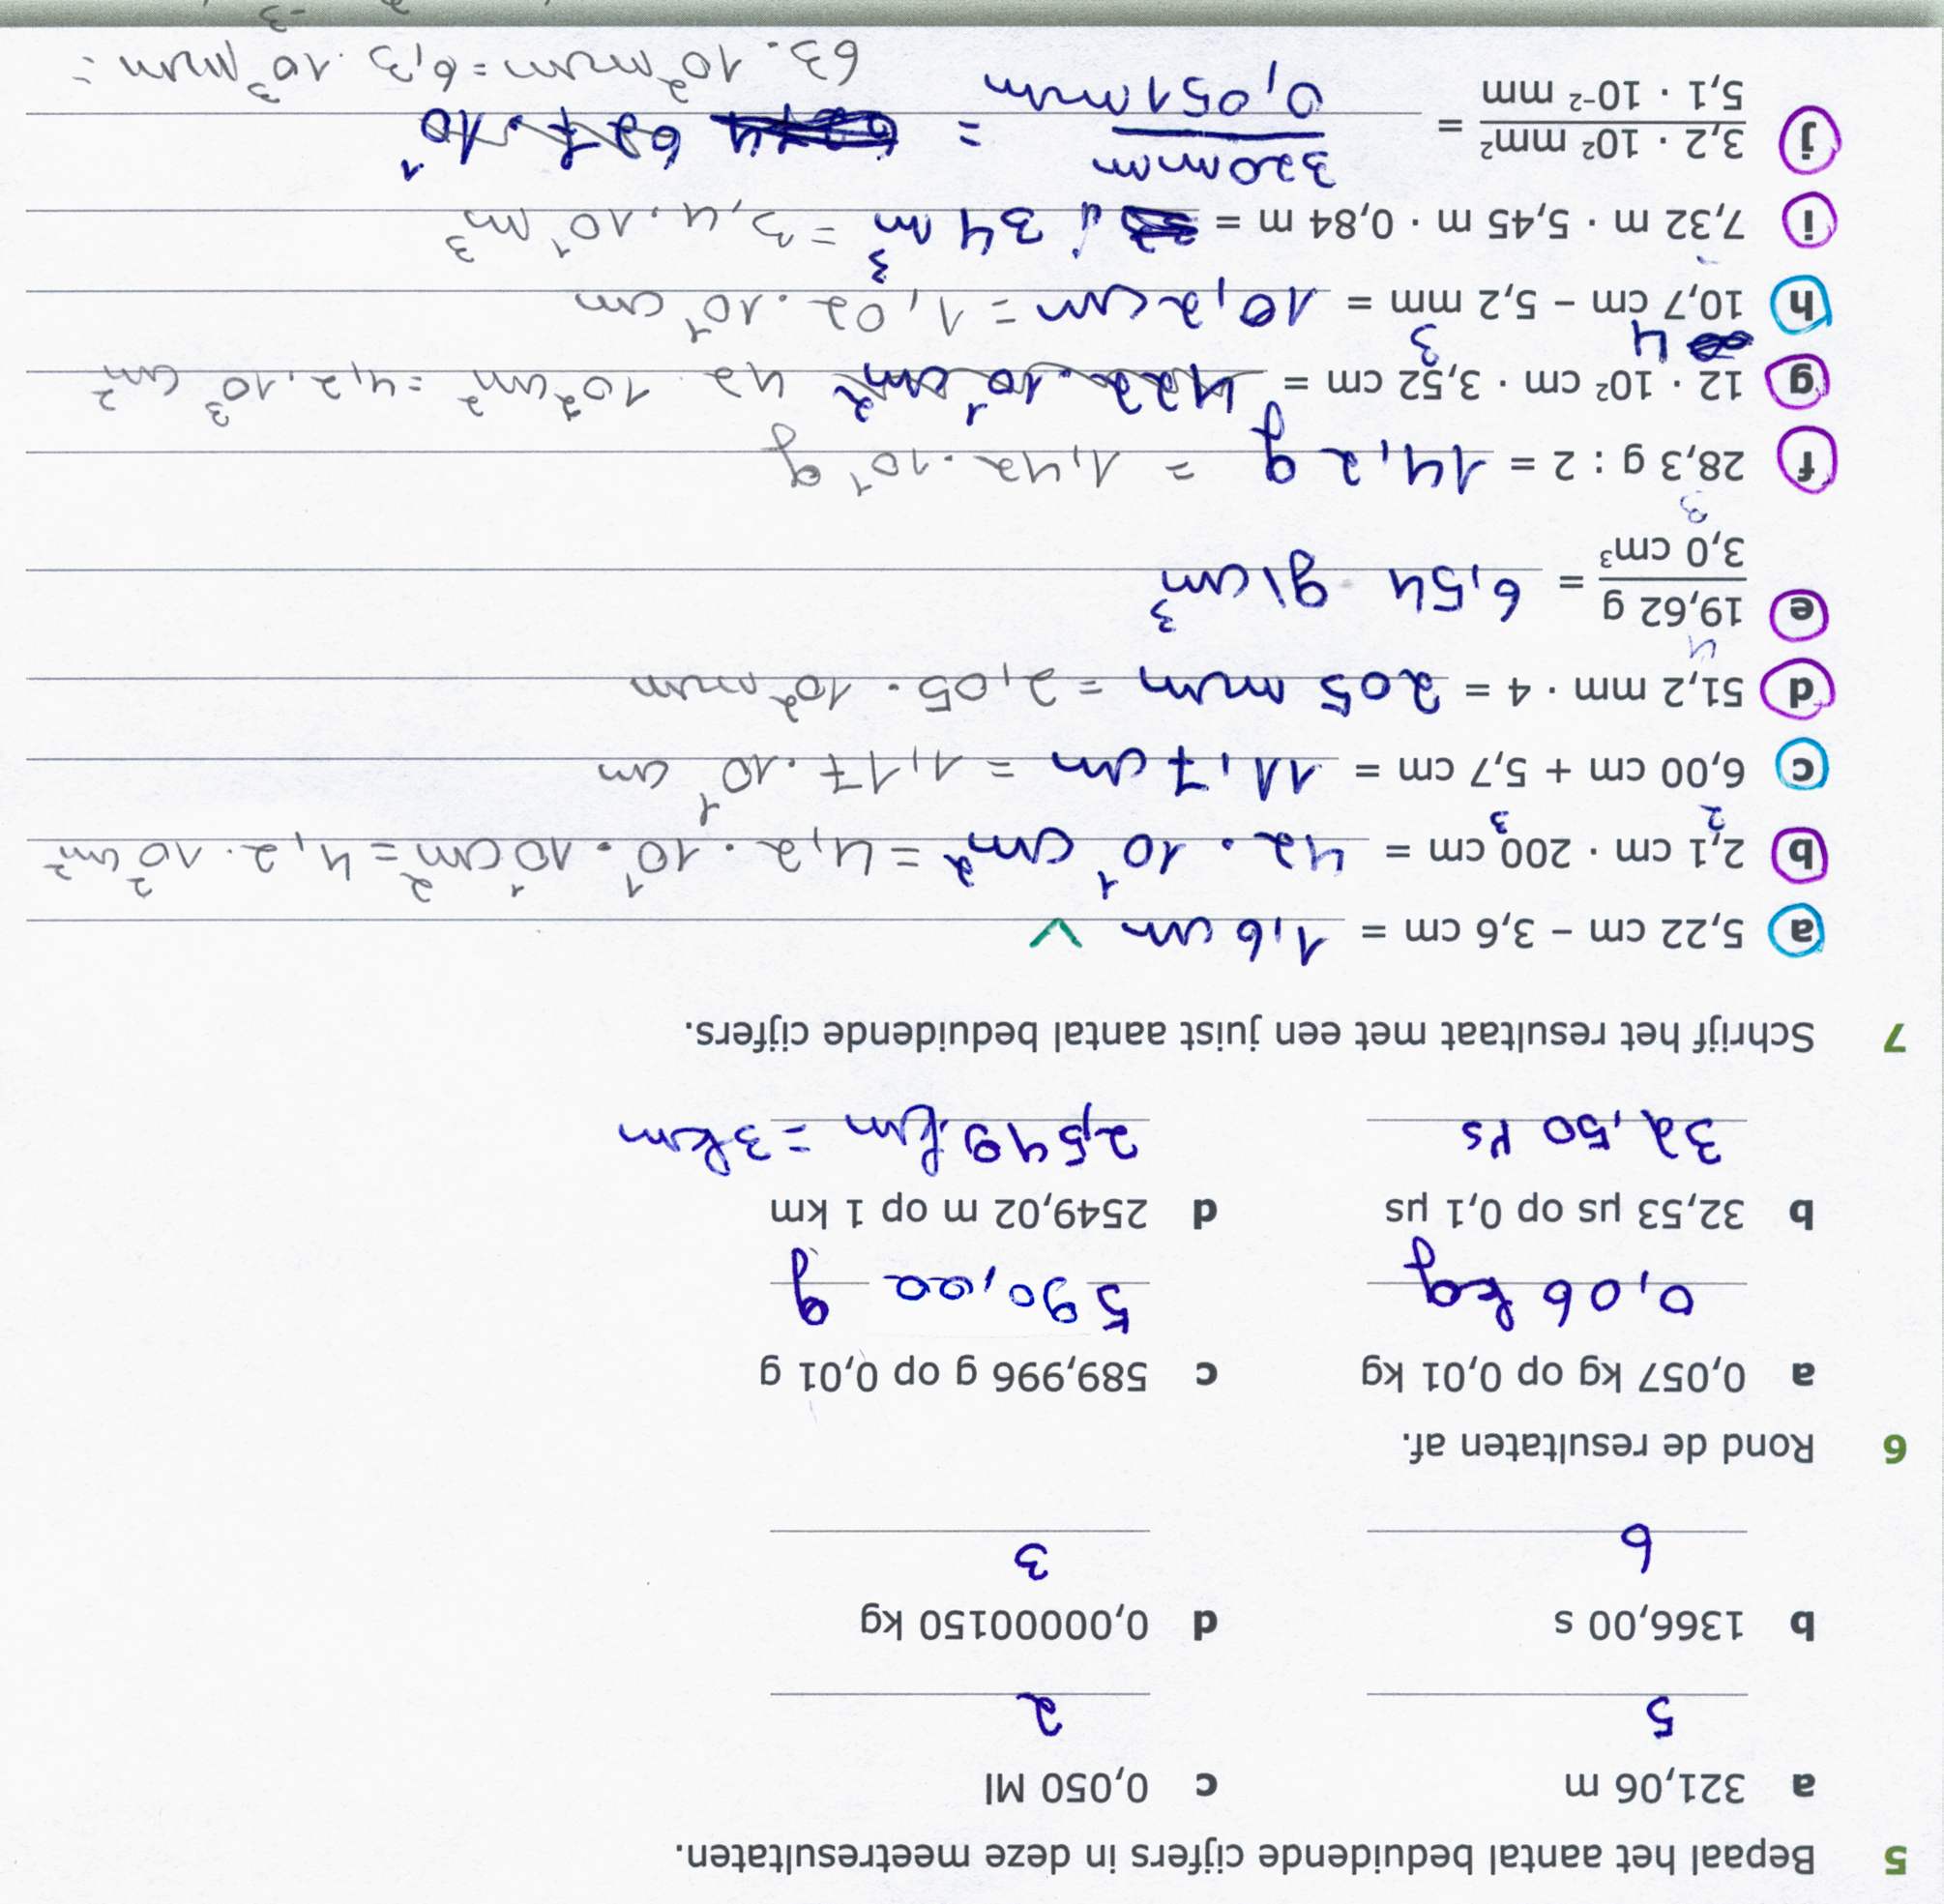 5 Bepaal het aantal beduidende cijfers in deze meetresultaten.
a 321,06 m c 0,050 Ml
5 2
b 1366,00 s d 0,00000150 kg
6 3
6 Rond de resultaten af.
a 0,057 kg op 0,01 kg c 589,996 g op 0,01 g
0,06 kg 590,00 g
b 32,53 µs op 0,1 µs d 2549,02 m op 1 km
32,50 µs 2,549 km = 3 km
7 Schrijf het resultaat met een juist aantal beduidende cijfers.
a 5,22 cm – 3,6 cm = 1,6 cm V
b 2,1 cm · 200 cm = 42 · 10¹ cm² = 4,2 · 10¹ · 10¹ cm² = 4,2 · 10² cm²
2 3
c 6,00 cm + 5,7 cm = 11,7 cm = 1,17 · 10¹ cm
d 51,2 mm · 4 = 205 mm = 2,05 · 10² mm
e 19,62 g / 3,0 cm³ = 6,54 g/cm³
4
3
f 28,3 g : 2 = 14,2 g = 1,42 · 10¹ g
g 12 · 10² cm · 3,52 cm = 422 · 10¹ cm² 42 · 10² cm² = 4,2 · 10³ cm²
4 3
h 10,7 cm – 5,2 mm = 10,2 cm = 1,02 · 10¹ cm
i 7,32 m · 5,45 m · 0,84 m = 34 m³ = 3,4 · 10¹ m³
j 3,2 · 10² mm² / 5,1 · 10⁻² mm = 320 mm / 0,051 mm = 627 · 10¹
63 · 10² mm = 6,3 · 10³ mm =